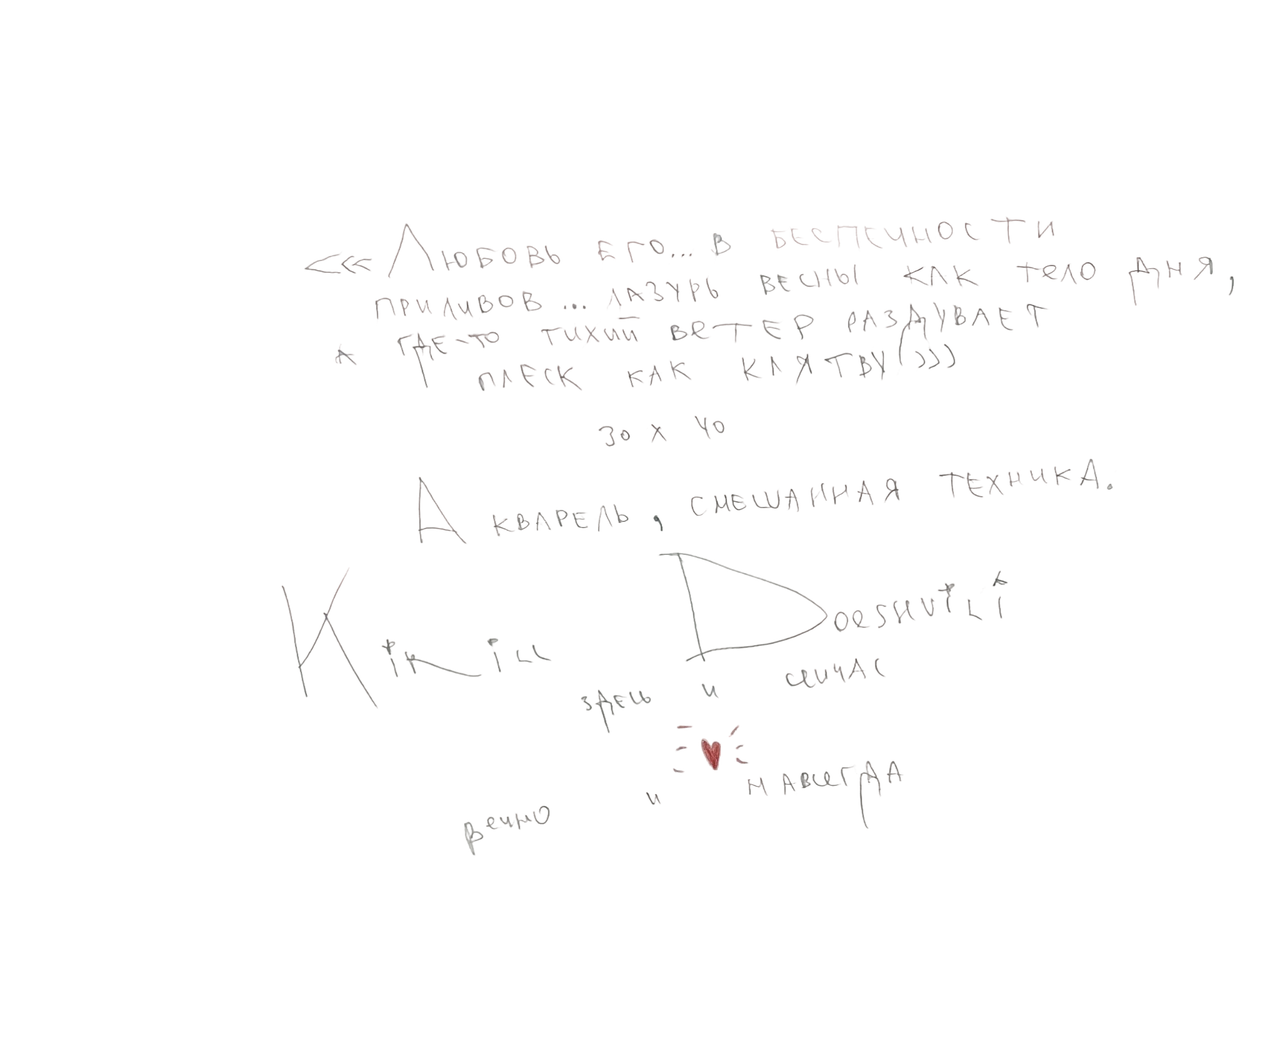 <<< Любовь его... в беспечности
приливов... лазурь весны как тело дня,
а где-то тихий ветер раздувает
плеск как клятву()))
30 x 40
Акварель, смешанная техника.
Kirill Doeshvili
здесь и сейчас
вечно и навсегда